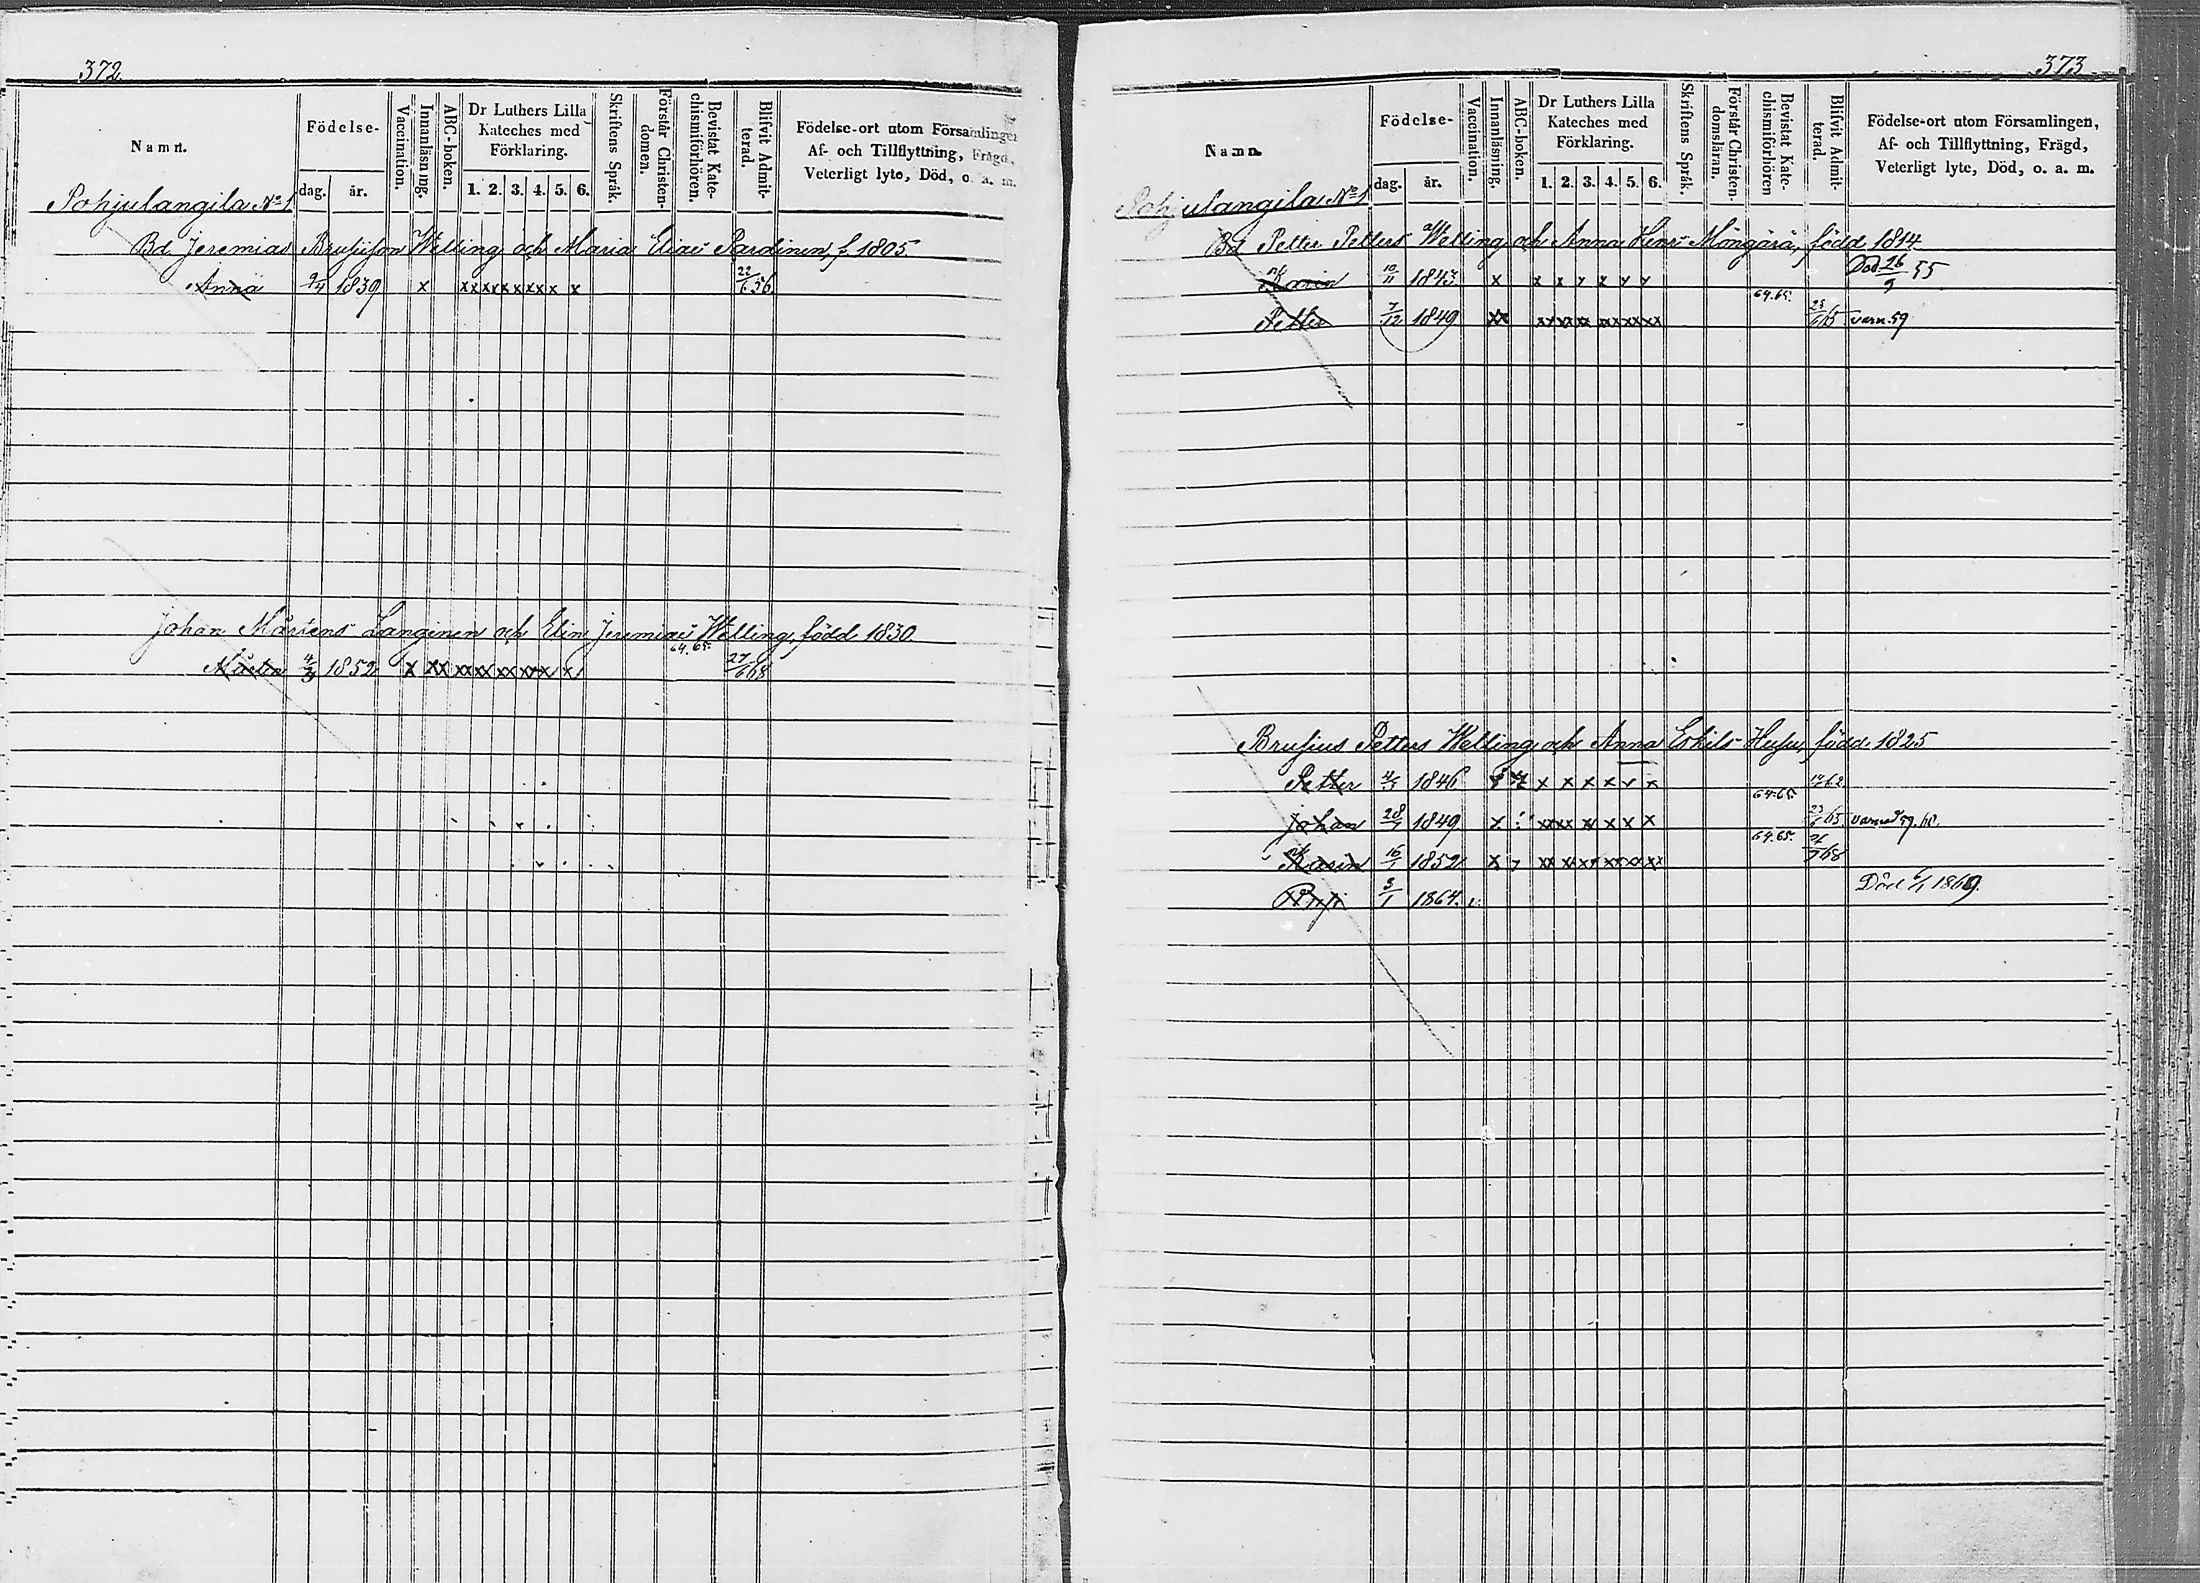 372.
Namn.
Födelse-
dag. år.
Vaccination.
Innanläsning.
ABC-boken.
Dr Luthers Lilla
Kateches med
Förklaring.
1. 2. 3. 4. 5. 6.
Skriftens Språk.
Förstår Christen-
domen.
Bevistat Kate-
chismiförhören.
Blifvit Admit-
terad.
Födelse-ort utom Församlingen
Af- och Tillflyttning, Frägd,
Veterligt lyte, Död, o. a. m.
Pohjulangila No 1
Bd Jeremias Brusiuson Welling och Maria Eliaë Pardinen, f. 1805.
Anna 9/4 1839 x xx xx x x xx x x 22/6 56.
Johan Mårtens Langinen och Elin Jeremiaë Welling, född 1830
64. 65.
Mårten 4/3 1852 x xx xx xx xx xx x 27/6 68
373
Namn.
Födelse-
dag. år.
Vaccination.
Innanläsning.
ABC-boken.
Dr Luthers Lilla
Kateches med
Förklaring.
1. 2. 3. 4. 5. 6.
Skriftens Språk.
Förstår Christen-
domsläran.
Bevistat Kate-
chismiförhören
Blifvit Admit-
terad.
Födelse-ort utom Församlingen,
Af- och Tillflyttning, Frägd,
Veterligt lyte, Död, o. a. m.
Pohjulangila No 1
Bd Petter Petters Welling och Anna Henr. Möngärä, född 1814
Karin 10/11 1843 x x x x x x x Död 26/9 55
64. 65.
Petter 7/12 1849 xx xx xx xx xx xx xx 25/6 65 varn. 59
Brusius Petters Welling och Anna Eskils Husu, född 1825
Petter 4/3 1846 x x x x x x 62
64. 65.
Johan 1849 x xx xx x x x 23/6 65 varnad 59.
64. 65.
Karin 16/1 1852 x xx xx xx xx xx xx 68
3/1 1864. v. Död 1869.